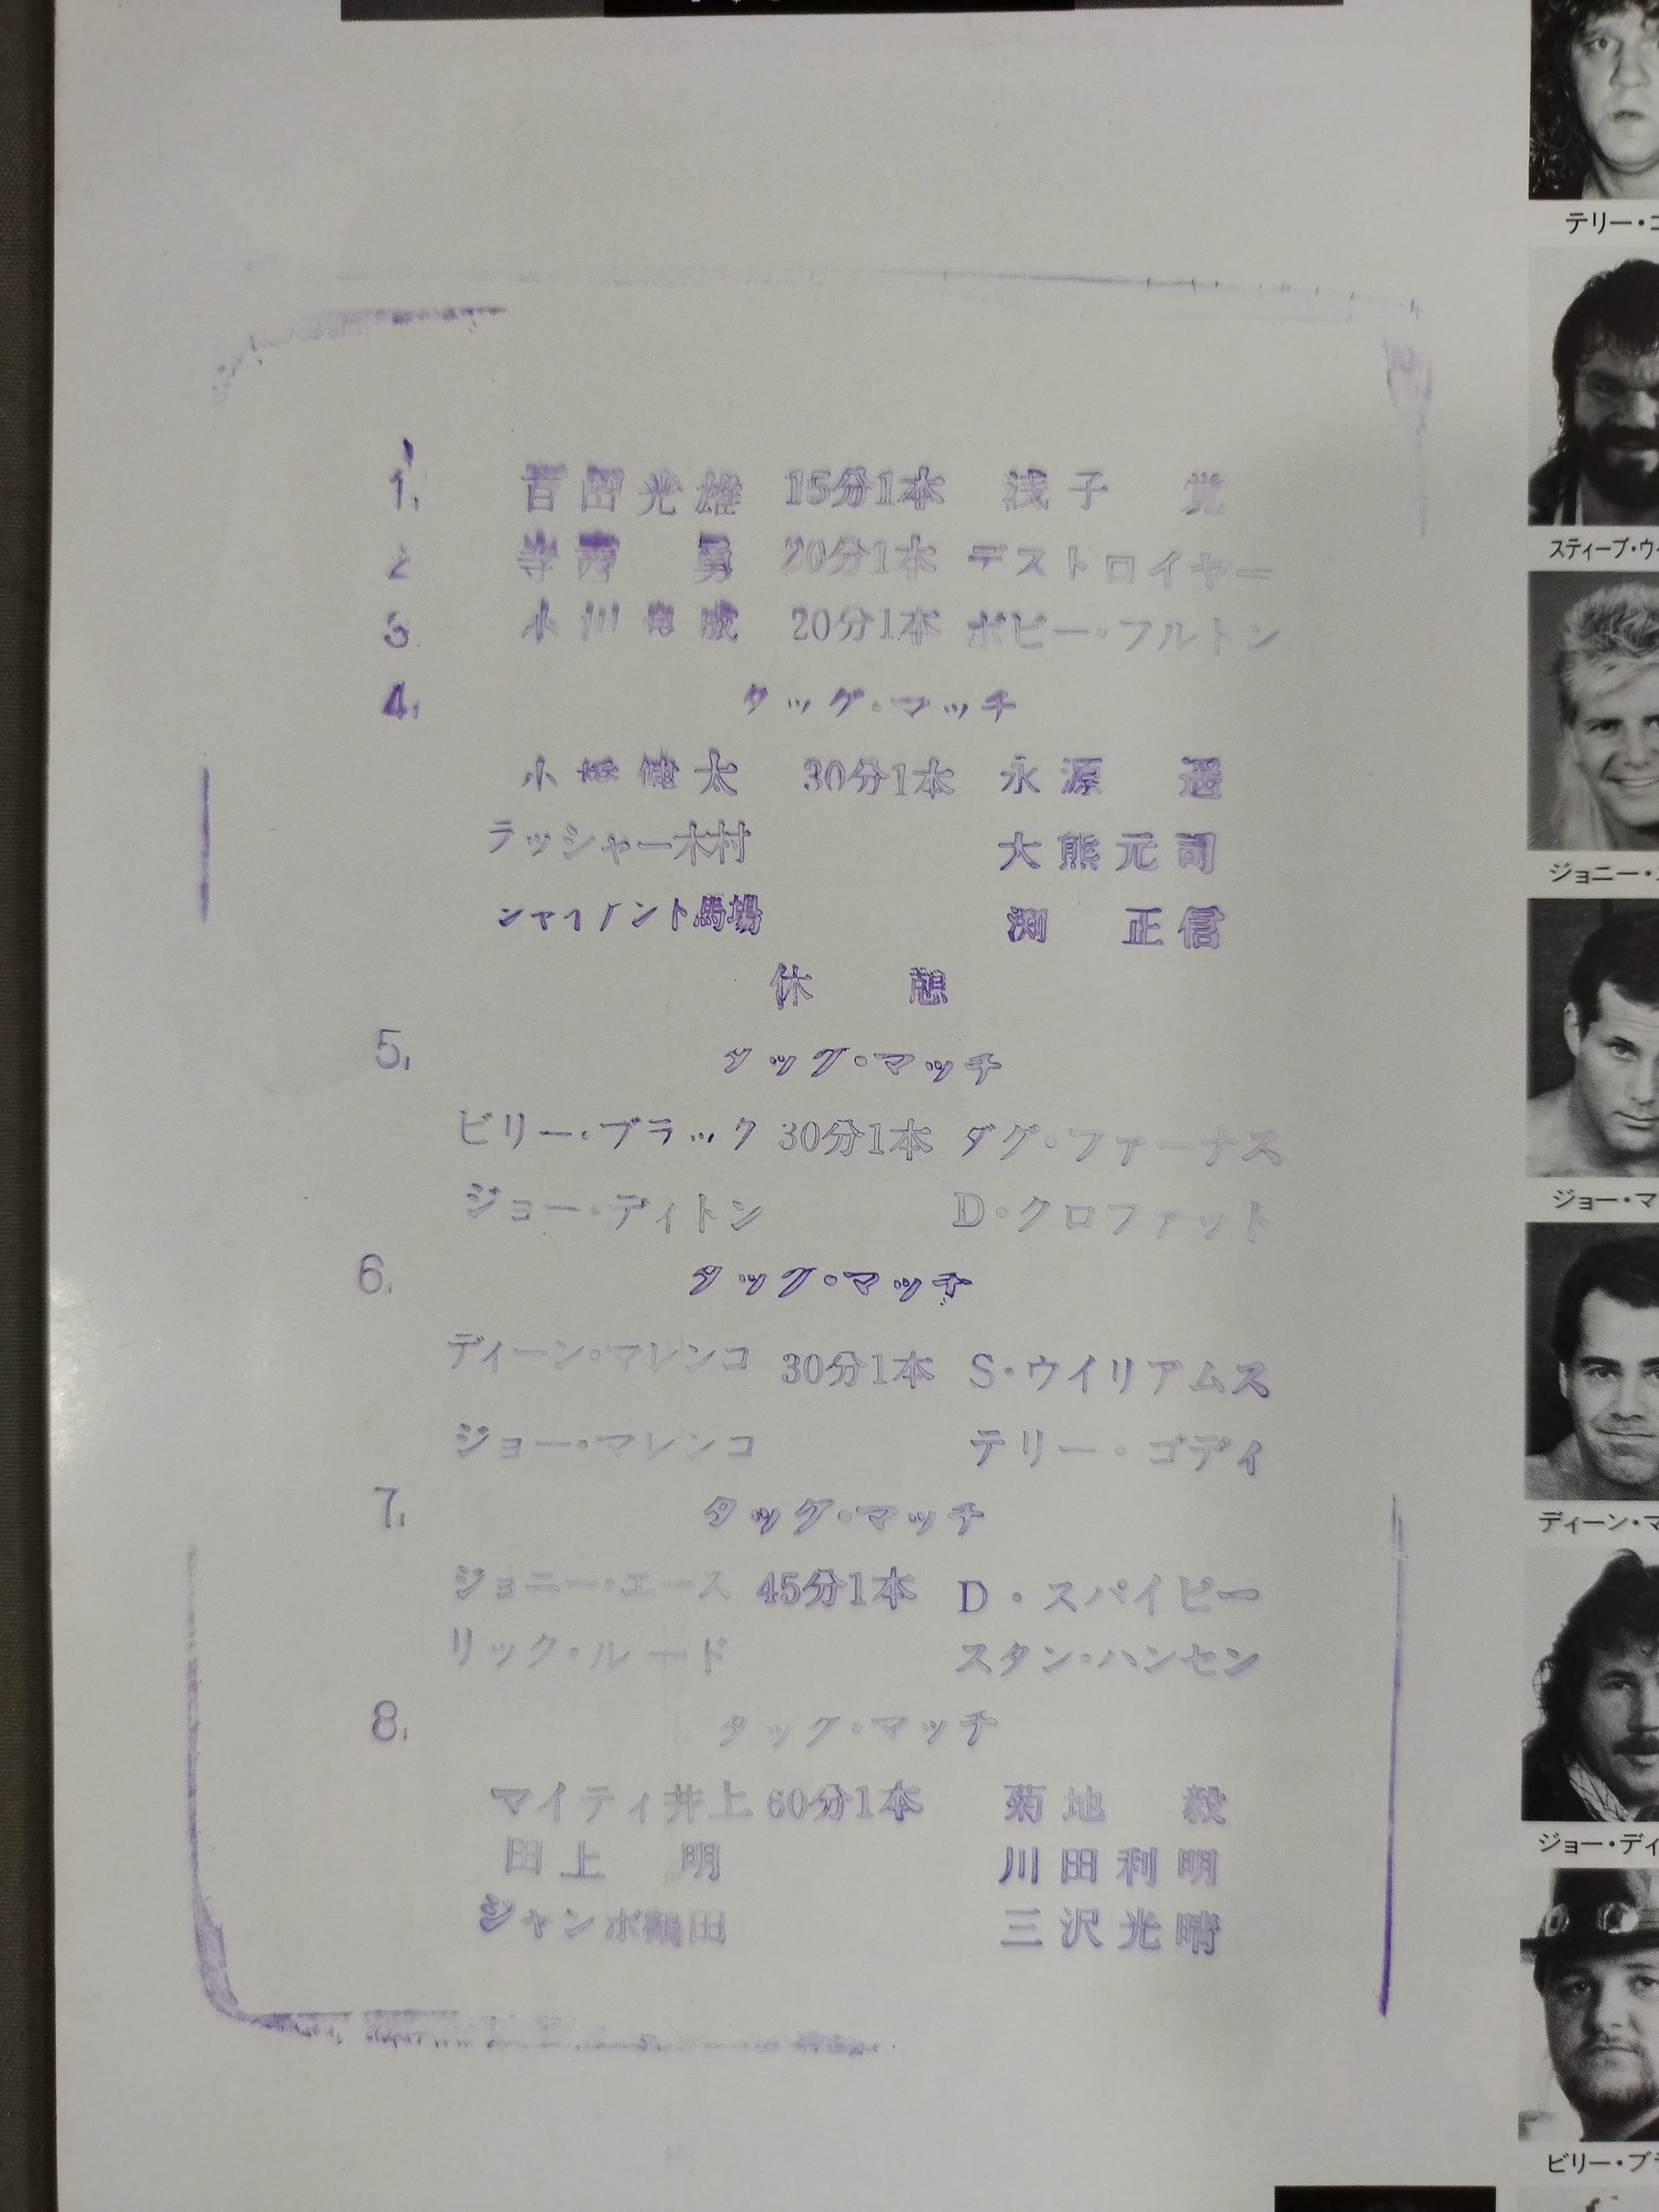 1. 百田光雄 15分1本 浅子 覚
2 寺西 勇 20分1本 デストロイヤー
3. 小川良成 20分1本 ボビー・フルトン
4. タッグ・マッチ
小橋健太 30分1本 永源 遥
ラッシャー木村 大熊元司
ジャイアント馬場 渕 正信
休 憩
5. タッグ・マッチ
ビリー・ブラック 30分1本 ダグ・ファーナス
ジョー・ディトン D・クロファット
6. タッグ・マッチ
ディーン・マレンコ 30分1本 S・ウイリアムス
ジョー・マレンコ テリー・ゴディ
7. タッグ・マッチ
ジョニー・エース 45分1本 D・スパイビー
リック・ルード スタン・ハンセン
8. タッグ・マッチ
マイティ井上 60分1本 菊地 毅
田上 明 川田利明
ジャンボ鶴田 三沢光晴
テリー・ゴ
スティーブ・ウ
ジョニー・
ジョー・マ
ディーン・マ
ジョー・ディ
ビリー・ブ